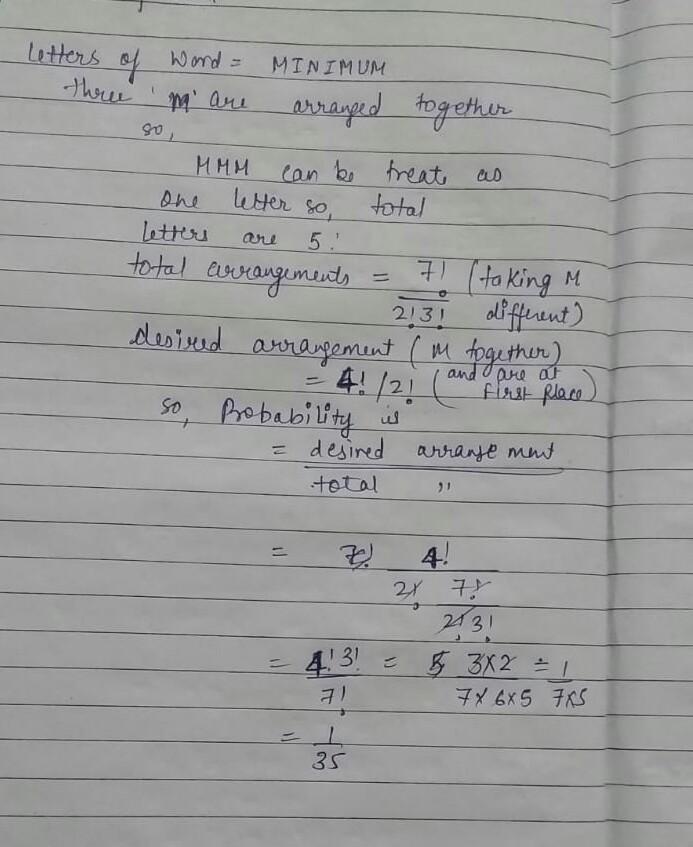 Letters of Word = MINIMUM
three 'M' are arranged together
so,
MMM can be treat as
one letter so, total
letters are 5.
total arrangements = 7! / 2!3! (taking M different)
desired arrangement (M together)
= 4! / 2! (and are at first place)
so, Probability is
= desired arrangement
total ,,
= 4!
2! 7!
2!3!
= 4!3! = 3×2 = 1
7! 7×6×5 7×5
= 1
35